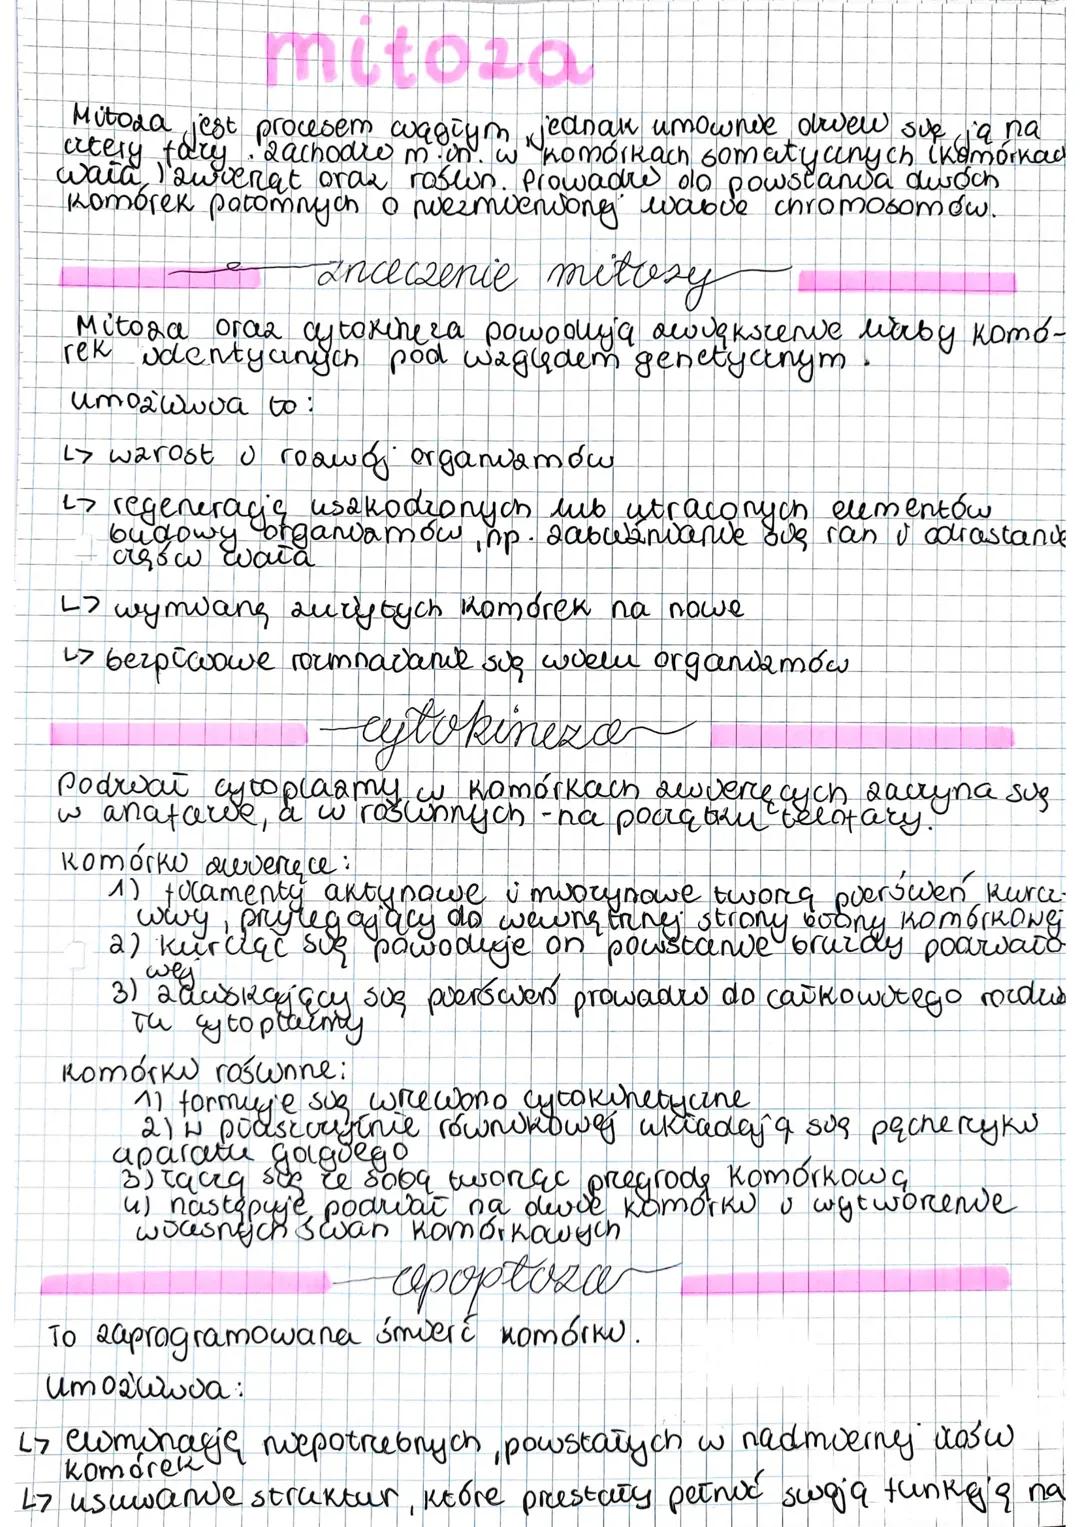 mitoza
Mitoza jest procesem ciągłym, jednak umownie dzieli się ją na
cztery fazy. Zachodzi m.in. w komórkach somatycznych (komórkach
ciała) zwierząt oraz roślin. Prowadzi do powstania dwóch
komórek potomnych o niezmienionej liczbie chromosomów.
znaczenie mitozy
Mitoza oraz cytokineza powodują zwiększenie liczby komó-
rek identycznych pod względem genetycznym.
umożliwia to:
↳ wzrost i rozwój organizmów
↳ regenerację uszkodzonych lub utraconych elementów
budowy organizmów, np. zabliźnianie się ran i odrastanie
części ciała
↳ wymianę zużytych komórek na nowe
↳ bezpłciowe rozmnażanie się wielu organizmów
cytokineza
Podział cytoplazmy w komórkach zwierzęcych zaczyna się
w anafazie, a w roślinnych - na początku telofazy.
komórki zwierzęce:
1) filamenty aktynowe i miozynowe tworzą pierścień kurcz-
liwy, przylegający do wewnętrznej strony błony komórkowej
2) kurcząc się powoduje on powstanie bruzdy podziało-
wej
3) zaciskający się pierścień prowadzi do całkowitego rozdzia
łu cytoplazmy
komórki roślinne:
1) formuje się wrzeciono cytokinetyczne
2) w płaszczyźnie równikowej układają się pęcherzyki
aparatu golgiego
3) łączą się ze sobą tworząc przegrodę komórkową
4) następuje podział na dwie komórki i wytworzenie
własnych ścian komórkowych
apoptoza
To zaprogramowana śmierć komórki.
umożliwia:
↳ eliminację niepotrzebnych, powstałych w nadmiernej ilości
komórek
↳ usuwanie struktur, które przestały pełnić swoją funkcję na